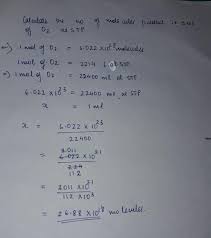 Calculate the no of molecules present in 1 ml
of O2 at STP
1 mol of O2 = 6.022 x 10 molecules
1 mol of O2 = 22.4 at STP
=) 1 mol of O2 = 22400 ml at STP
6.022 x 10^23 = 22400 ml at STP
x = 1 ml
x = 6.022 x 10^23
22400
= 3.011
6.022 x 10^21
224
112
= 3011 x 10^21
112 x 10^3
= 26.88 x 10^18 molecules.